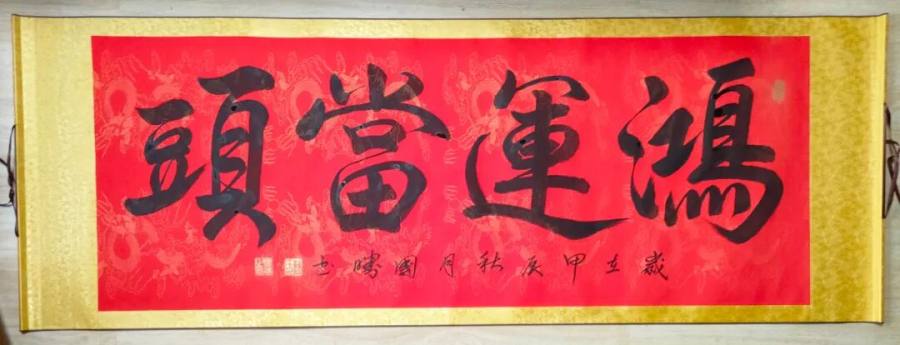 鴻運當頭
歲在甲辰秋月國勝書